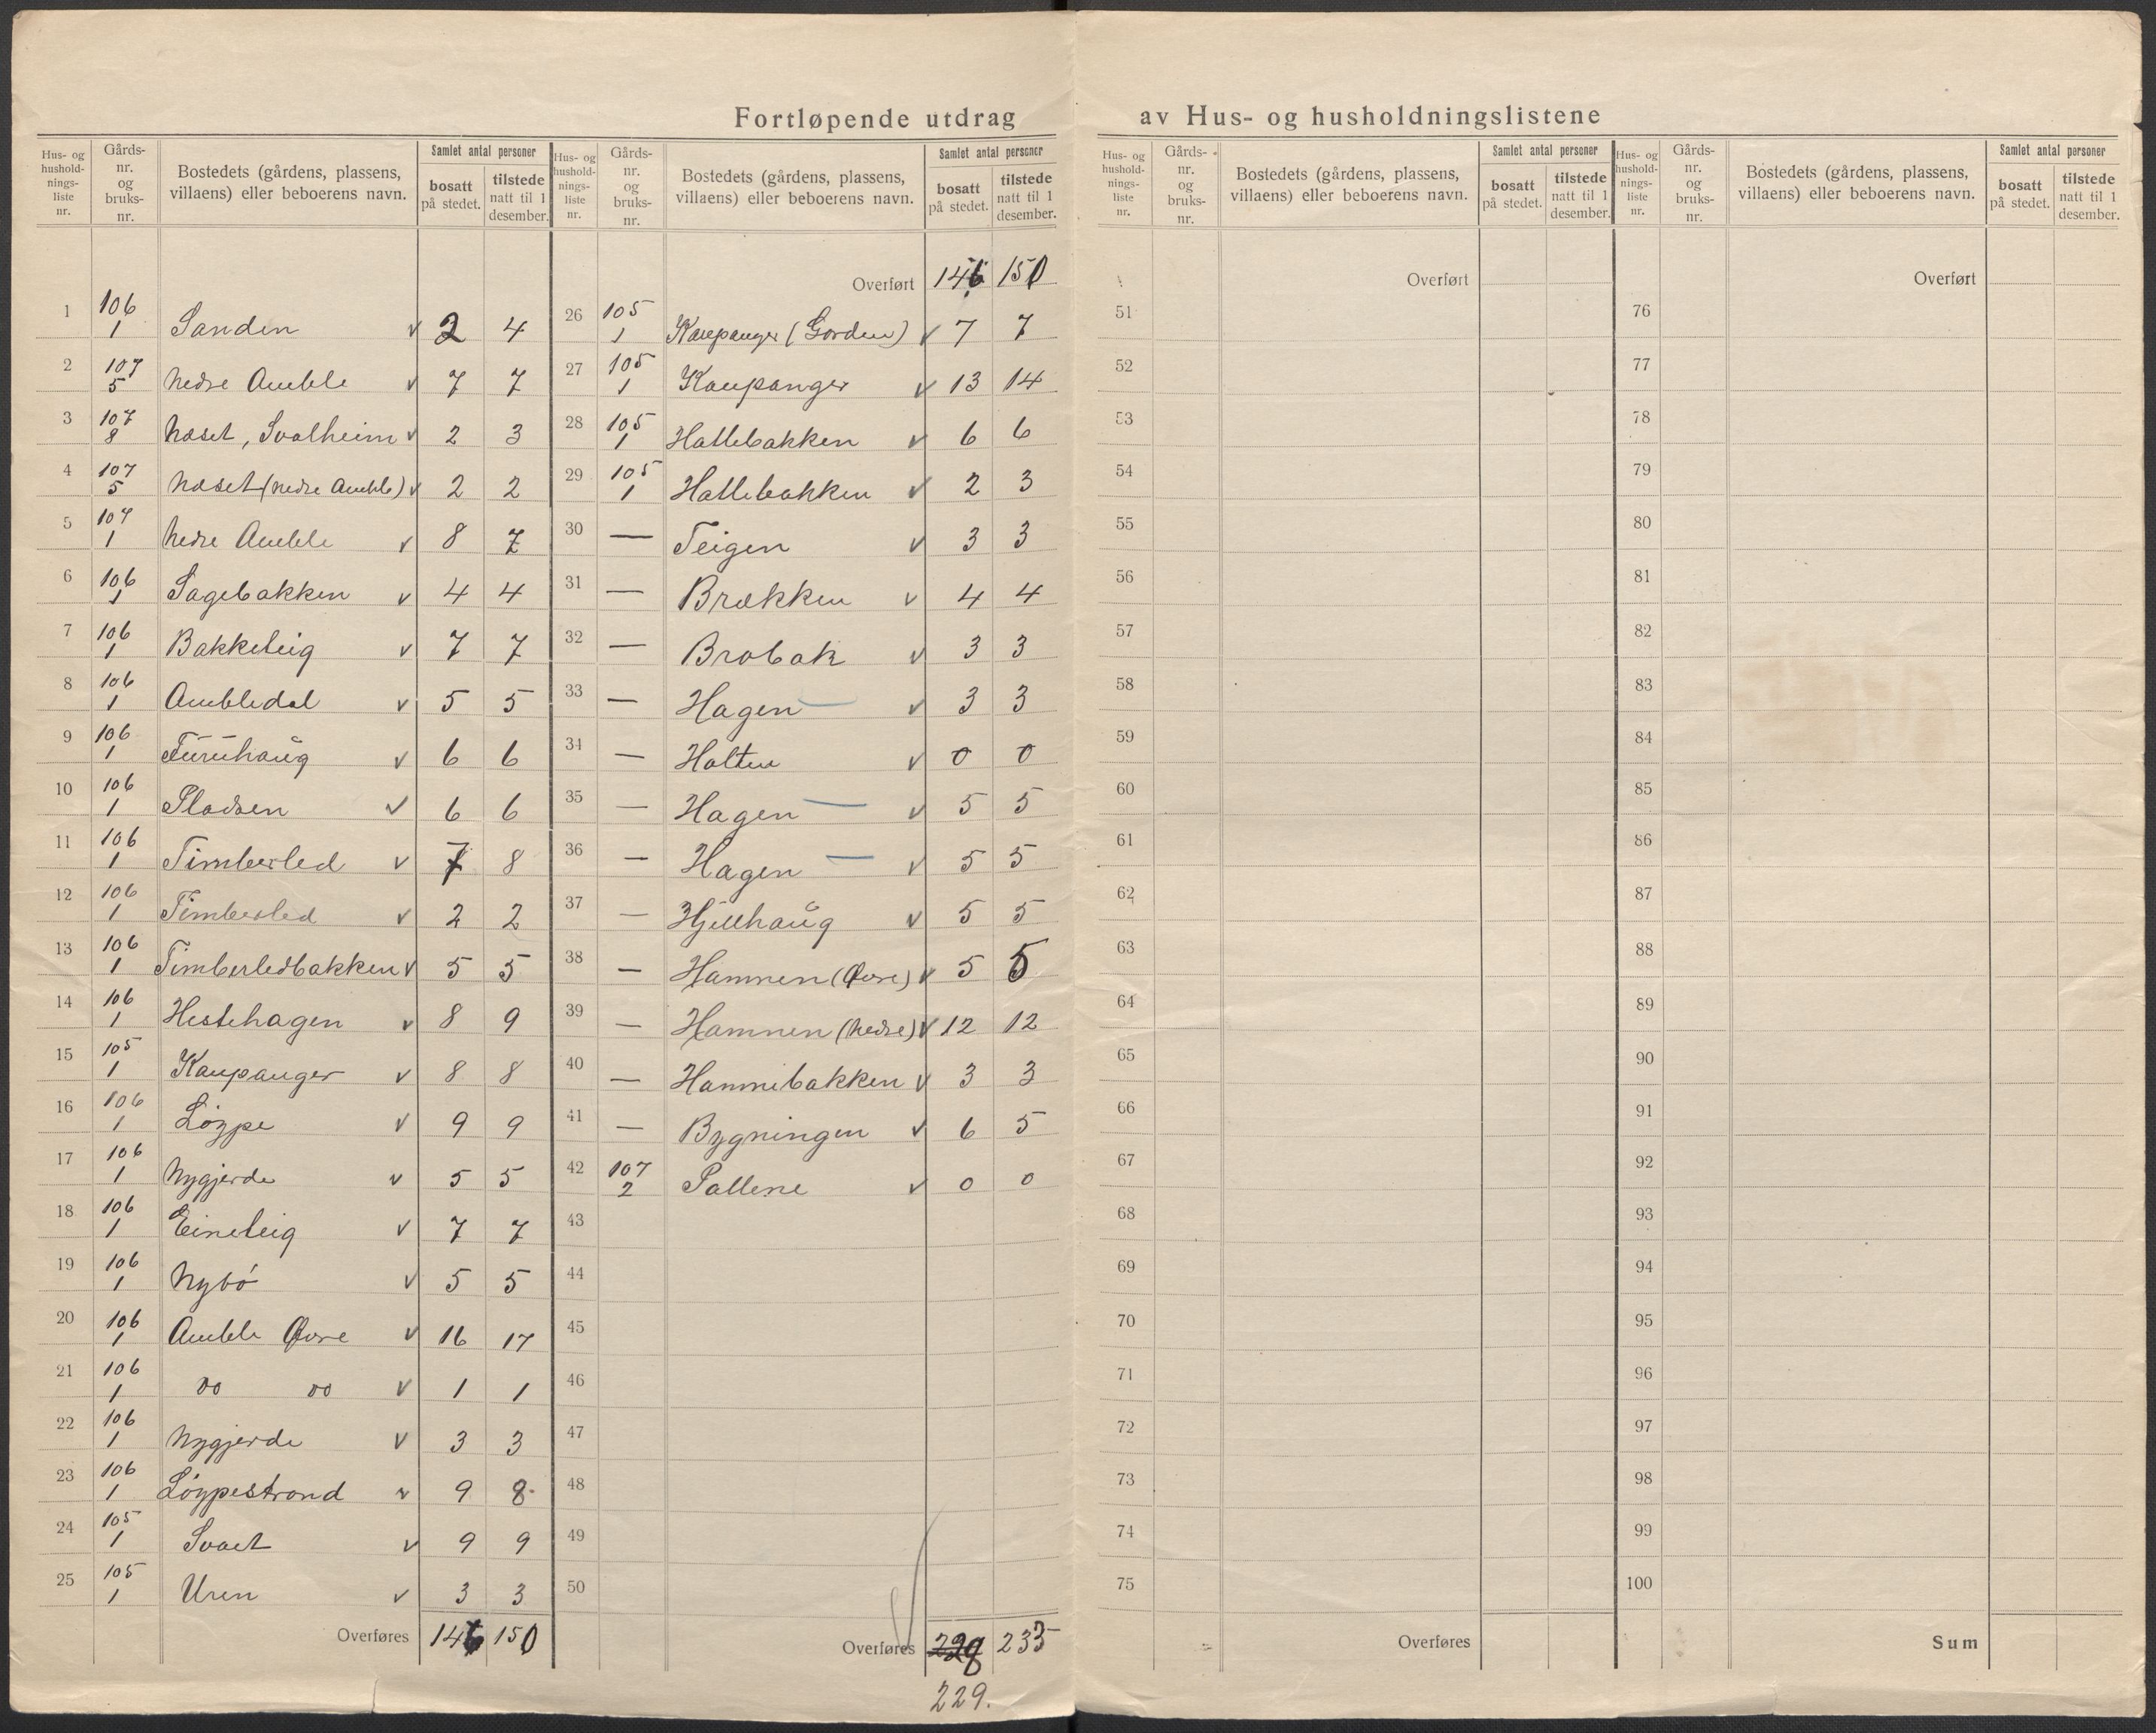 Fortløpende utdrag av Hus- og husholdningslistene
Hus- og hushold-nings-liste nr. Gårds-nr. og bruks-nr. Bostedets (gårdens, plassens, villaens) eller beboerens navn. Samlet antal personer bosatt på stedet. tilstede natt til 1 desember.
1 106 1 Sanden v 2 4
2 107 5 Nedre Amble v 7 7
3 107 8 Næset, Svalheim v 2 3
4 107 5 Næset (Nedre Amble) v 2 2
5 107 1 Nedre Amble v 8 7
6 106 1 Sagebakken v 4 4
7 106 1 Bakketeig v 7 7
8 106 1 Ambledal v 5 5
9 106 1 Furuhaug v 6 6
10 106 1 Pladsen v 6 6
11 106 1 Timberled v 7 8
12 106 1 Timberled v 2 2
13 106 1 Timberledbakken v 5 5
14 106 1 Hestehagen v 8 9
15 105 1 Kaupanger v 8 8
16 106 1 Løype v 9 9
17 106 1 Nygjerde v 5 5
18 106 1 Eineteig v 7 7
19 106 1 Nybö v 5 5
20 106 1 Amble Øvre v 16 17
21 106 1 do do v 1 1
22 106 1 Nygjerde v 3 3
23 106 1 Løypestrand v 9 8
24 105 1 Svaet v 9 9
25 105 1 Uren v 3 3
Overføres 146 150
Hus- og hushold-nings-liste nr. Gårds-nr. og bruks-nr. Bostedets (gårdens, plassens, villaens) eller beboerens navn. Samlet antal personer bosatt på stedet. tilstede natt til 1 desember.
Overført 146 150
26 105 1 Kaupanger (Gorden) v 7 7
27 105 1 Kaupanger v 13 14
28 105 1 Hallebakken v 6 6
29 105 1 Hallebakken v 2 3
30 — Teigen v 3 3
31 — Brækken v 4 4
32 — Brobak v 3 3
33 — Hagen — v 3 3
34 — Holten v 0 0
35 — Hagen — v 5 5
36 — Hagen — v 5 5
37 — Hjellhaug v 5 5
38 — Hamnen (Øvre) v 5 5
39 — Hamnen (Nedre) v 12 12
40 — Hamnebakken v 3 3
41 — Bygningen v 6 5
42 107 2 Pallene v 0 0
43
44
45
46
47
48
49
50
Overføres 229 235
229.
Hus- og hushold-nings-liste nr. Gårds-nr. og bruks-nr. Bostedets (gårdens, plassens, villaens) eller beboerens navn. Samlet antal personer bosatt på stedet. tilstede natt til 1 desember.
Overført
51
52
53
54
55
56
57
58
59
60
61
62
63
64
65
66
67
68
69
70
71
72
73
74
75
Overføres
Hus- og hushold-nings-liste nr. Gårds-nr. og bruks-nr. Bostedets (gårdens, plassens, villaens) eller beboerens navn. Samlet antal personer bosatt på stedet. tilstede natt til 1 desember.
Overført
76
77
78
79
80
81
82
83
84
85
86
87
88
89
90
91
92
93
94
95
96
97
98
99
100
Sum